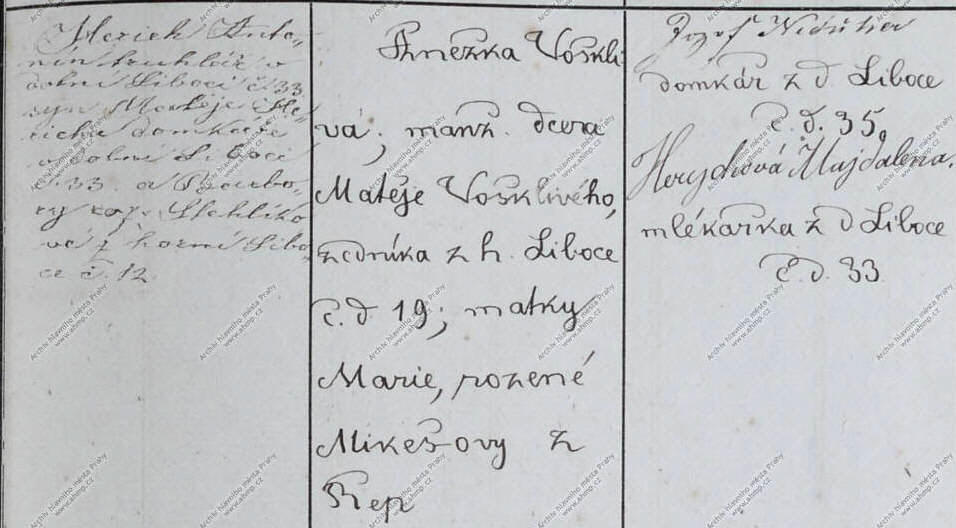 Herich Anto-
nín truhlář v
dolní Liboci č 33
syn Matěje He-
richa domkáře
v dolní Liboci
č. 33. a Barbo-
ry roz. Stehlíko-
vé z horní Libo-
ce č. 12
Anežka Voskli
vá, manž. dcera
Matěje Vosklivého,
zedníka z h. Liboce
č. d 19; matky
Marie, rozené
Mikešovy z
Řep
Josef
domkář z d. Liboce
č. d. 35.
Herychová Majdalena,
mlékařka z d Liboce
č. d. 33
Archiv hlavního města Prahy
www.ahmp.cz